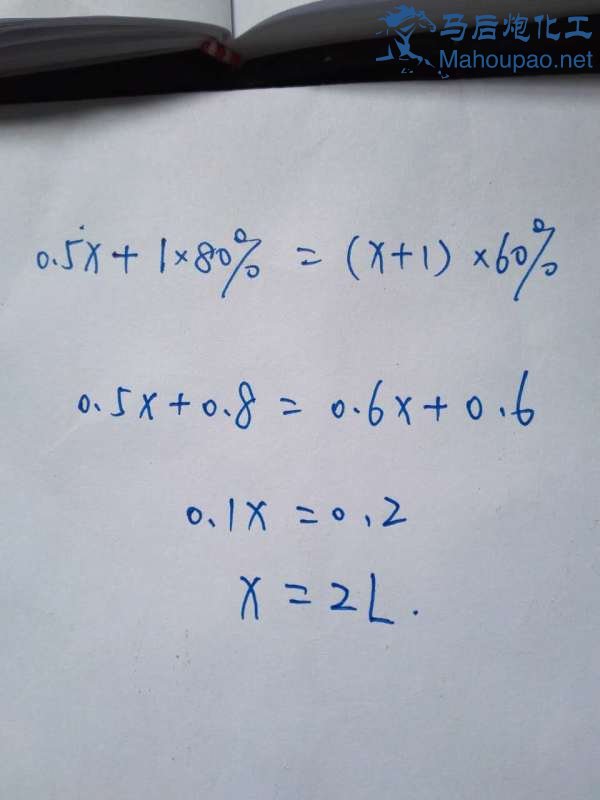 马后炮化工
Mahoupao.net
0.5x + 1×80% = (x+1) ×60%
0.5x + 0.8 = 0.6x + 0.6
0.1x = 0.2
x = 2L.